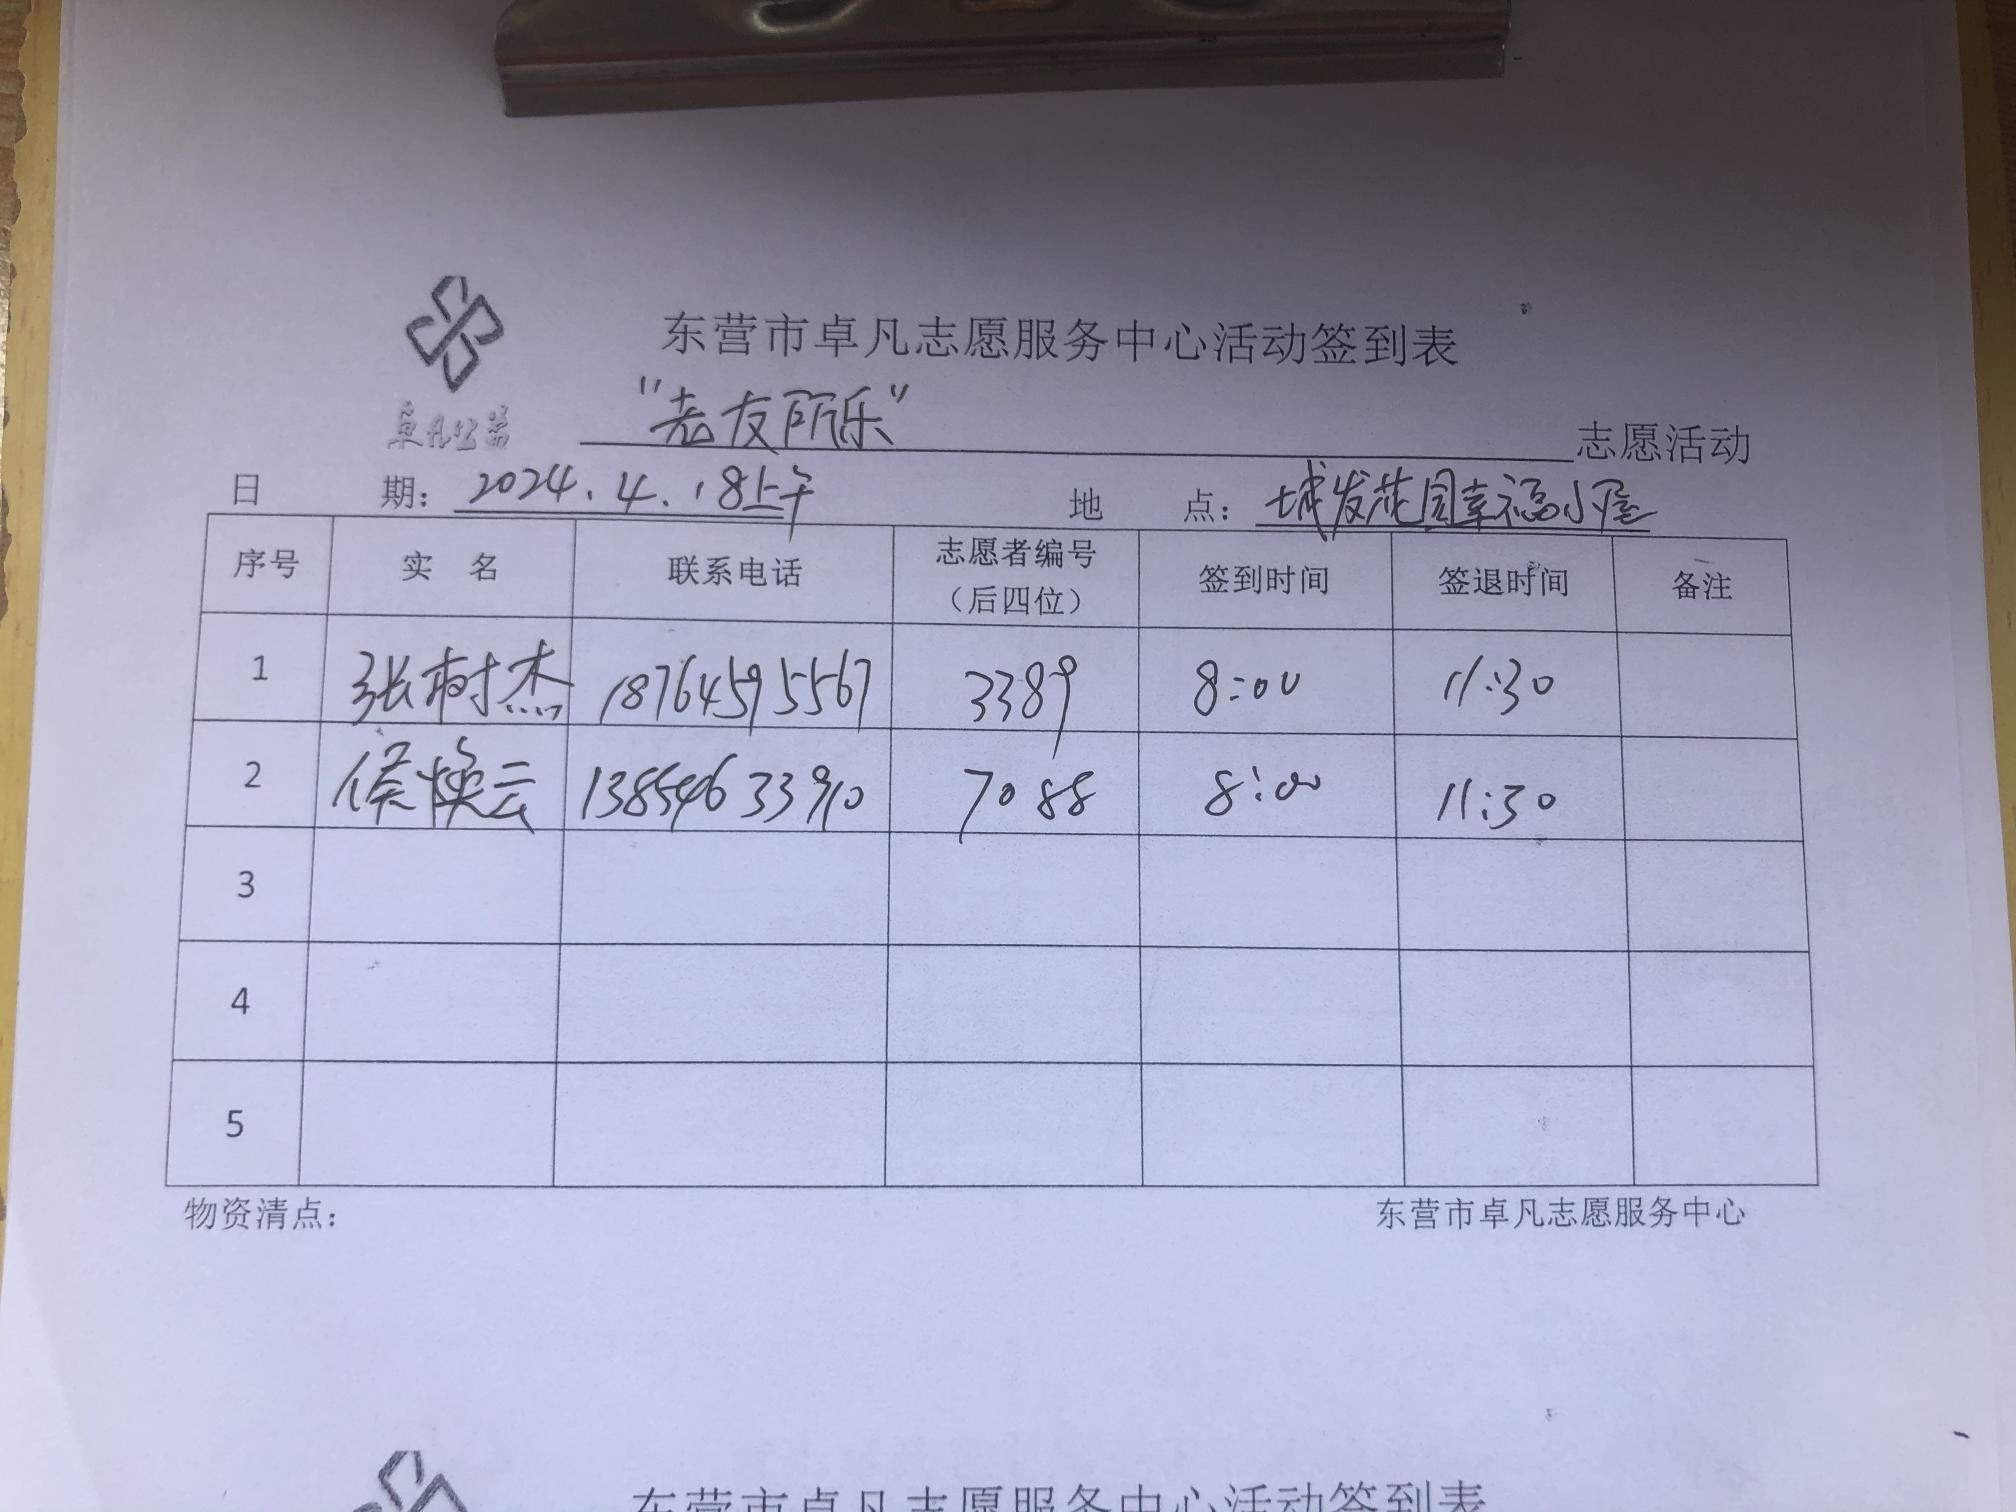 东营市卓凡志愿服务中心活动签到表
卓凡公益
“老友所乐” 志愿活动
日 期：2024.4.18上午 地 点：城发花园幸福小屋
序号 实 名 联系电话 志愿者编号（后四位） 签到时间 签退时间 备注
1 张树杰 18764595567 3389 8:00 11:30
2 侯焕云 13854633910 7088 8:00 11:30
3
4
5
物资清点： 东营市卓凡志愿服务中心
东营市卓凡志愿服务中心活动签到表